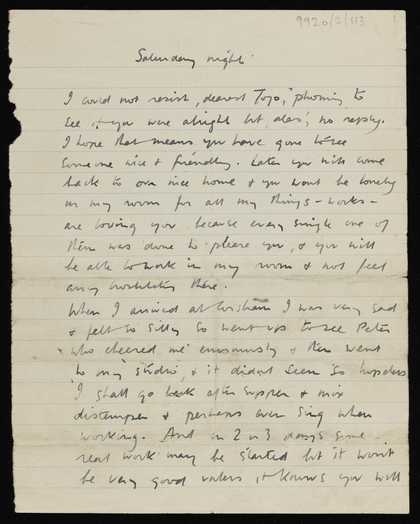 9920/2/113
Saturday night
I could not resist, dearest Toyo, 'phoning to
see if you were alright but, alas, no reply.
I hope that means you have gone to see
someone nice & friendly. Later you will come
back to our nice home & you wont be lonely
in my room for all my things - works -
are loving you because every single one of
them was done to please you, & you will
be able to work in my room & not feel
any hostility there.
When I arrived at Corsham I was very sad
& felt so silly so went up to see Peter
who cheered me enormously & then went
to my studio, & it didnt seem so hopeless
I shall go back after supper & mix
distemper & perhaps even sing when
working. And in 2 or 3 days some
real work may be started but it won't
be very good unless it knows you will